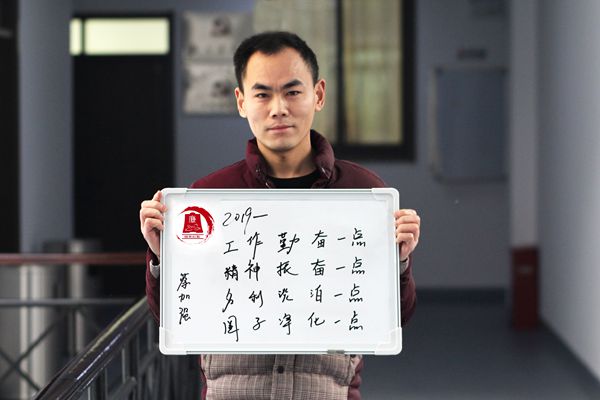 2019—
工作勤奋一点
精神振奋一点
名利淡泊一点
圈子净化一点
蔡加强